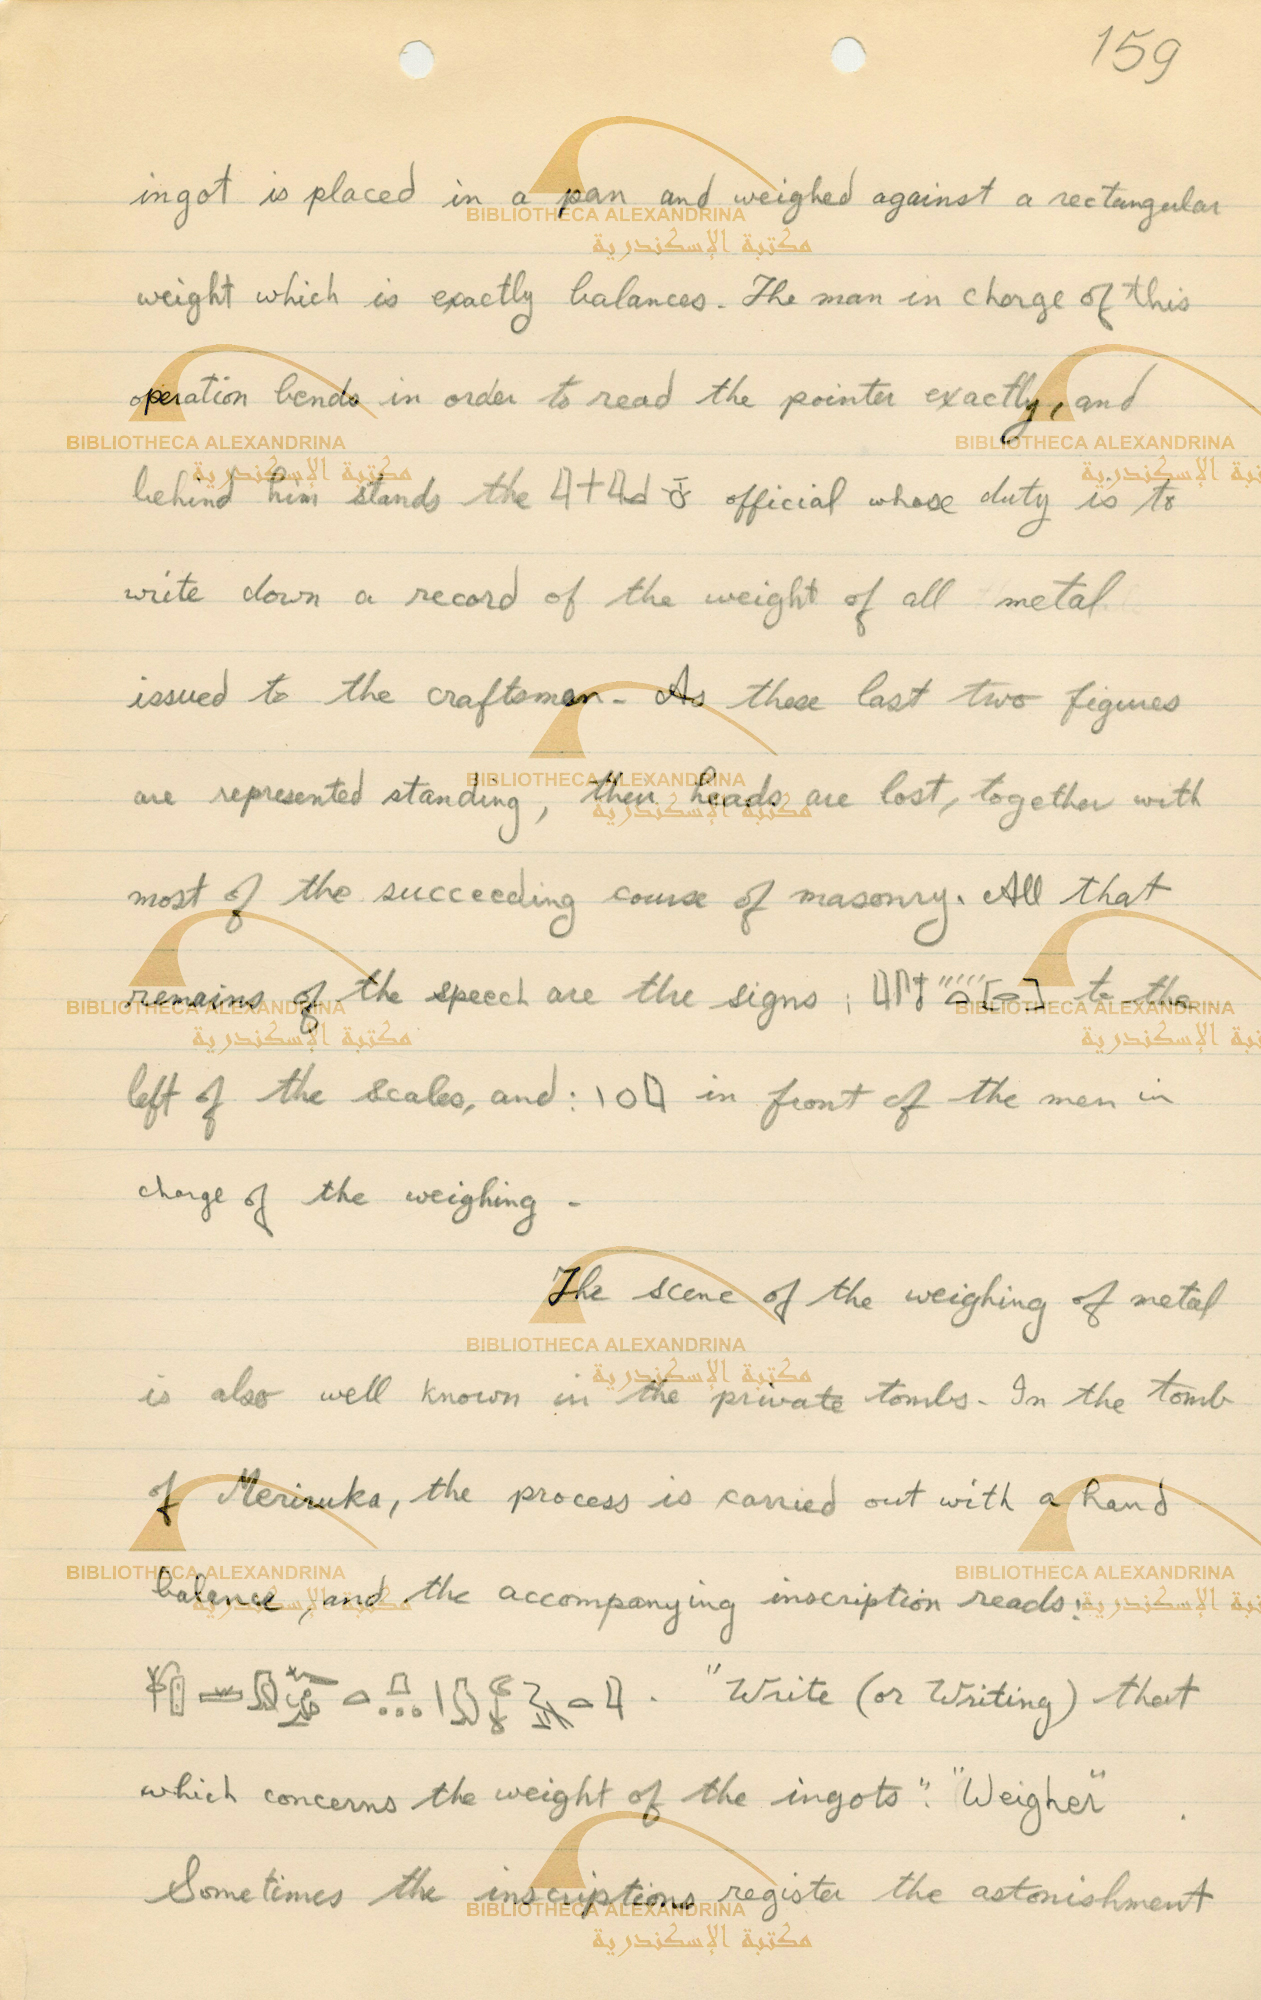 159
ingot is placed in a pan and weighed against a rectangular
weight which is exactly balances. The man in charge of this
operation bends in order to read the pointer exactly, and
behind him stands the official whose duty is to
write down a record of the weight of all metal
issued to the craftsmen. As these last two figures
are represented standing, their heads are lost, together with
most of the succeeding course of masonry. All that
remains of the speech are the signs : to the
left of the scales, and : in front of the men in
charge of the weighing -
The scene of the weighing of metal
is also well known in the private tombs. In the tomb
of Meriruka, the process is carried out with a hand
balance, and the accompanying inscription reads:
"Write (or Writing) that
which concerns the weight of the ingots". "Weigher"
Sometimes the inscriptions register the astonishment
BIBLIOTHECA ALEXANDRINA
مكتبة الإسكندرية
BIBLIOTHECA ALEXANDRINA
مكتبة الإسكندرية
BIBLIOTHECA ALEXANDRINA
BIBLIOTHECA ALEXANDRINA
مكتبة الإسكندرية
BIBLIOTHECA ALEXANDRINA
مكتبة الإسكندرية
BIBLIOTHECA ALEXANDRINA
BIBLIOTHECA ALEXANDRINA
مكتبة الإسكندرية
BIBLIOTHECA ALEXANDRINA
مكتبة الإسكندرية
BIBLIOTHECA ALEXANDRINA
BIBLIOTHECA ALEXANDRINA
مكتبة الإسكندرية